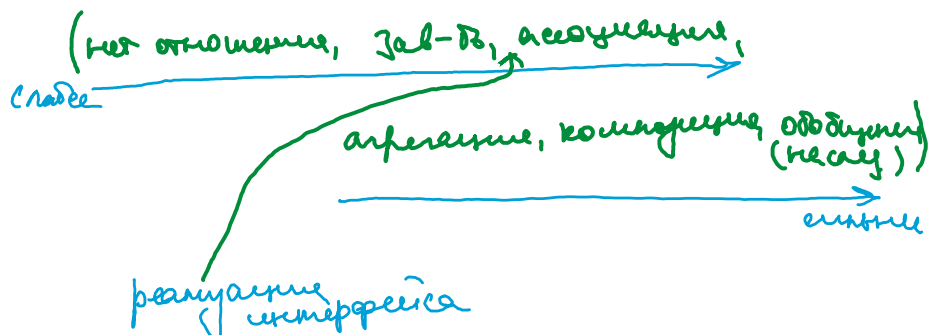 (нет отношения, зав-ть, ассоциация,
слабее
агрегация, композиция, обобщение
(наслед))
сильнее
реализация
интерфейса